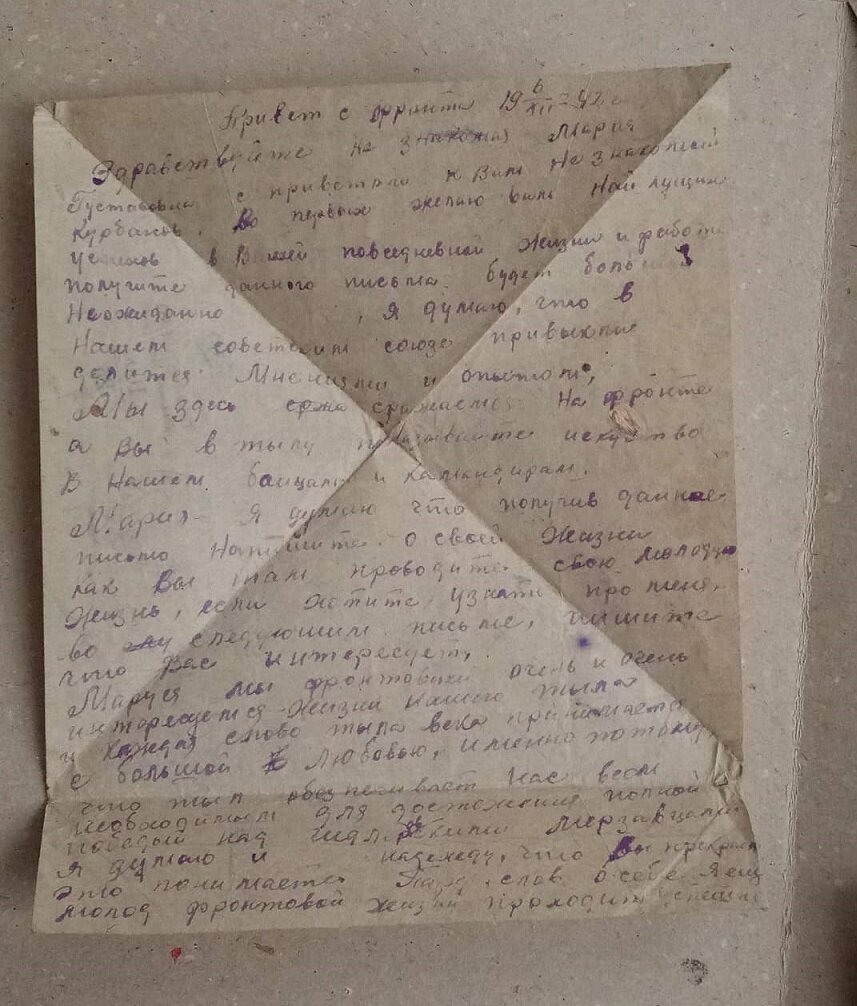 Привет с фронта 19 6/XII-42 г
Здравствуйте не знакомая Мария
Густавовна с приветом к Вам Не знакомый
Курбанов. Во первых желаю вам Най лущих
успехов в Вашей повседневной жизни и работе
получите данного письма. будет большим
Неожиданно , я думаю, что в
Нашем советском союзе привыкли
делится Мнениями и опытом,
Мы здесь сражаемся На фронте
а Вы в тылу искуство
В Нашем байцам и камандирам.
Мария я думаю что получив данное
письмо Напишите о своей Жизни
как Вы там проводите свою молодую
Жизнь, если хотите узнать про меня,
во следующим письме, пишите
что Вас интересует,
Маруся мы фронтовики очень и очень
интересуемся Жизни нашего тыла
и каждая слово тыла века принимается
с большой Любовью, именно потому
что тыл обеспечивает Нас всем
необходимым для достожения полной
победый над мерзавцами
Я думаю и надежду, что Вы прекрасно
это понимаете Пару слов о себе я еще
молод фронтовой жизни проходит